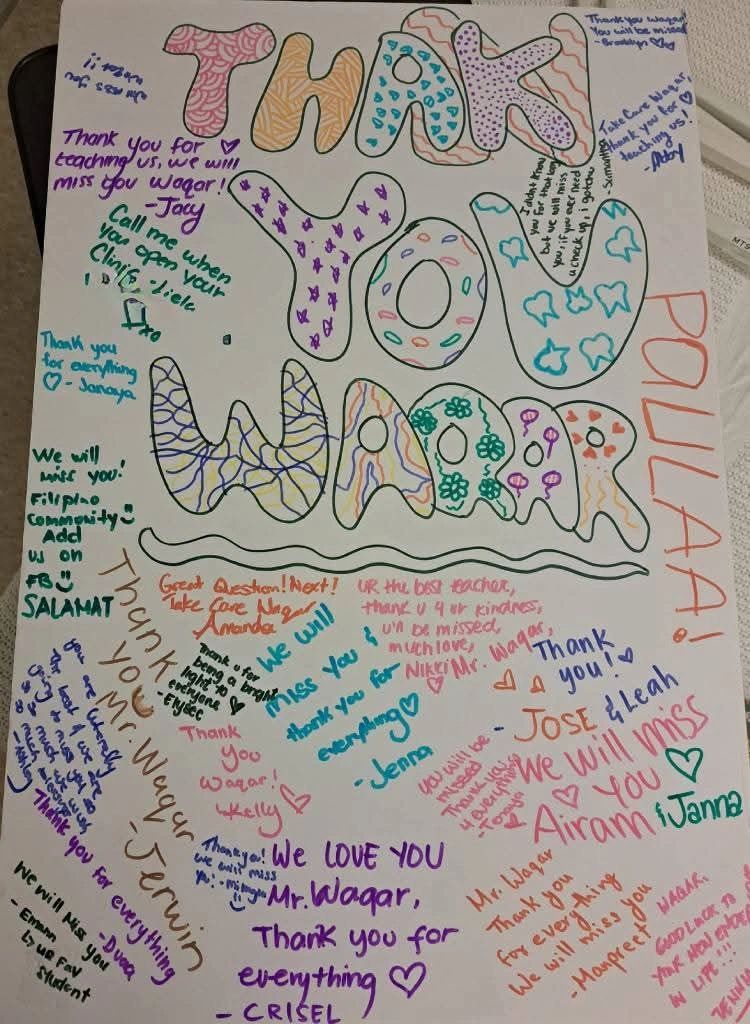 THANK
YOU
WAQAR
Thank you Waqar
You will be missed
- Brooklyn
Take Care Waqar,
thank you for
teaching us!
- Abby
I didn't know
you for that long
but we will miss
you, if you ever need
a check up, i gotchu
- Samantha
Thank you for
teaching us, we will
miss you Waqar!
- Jacy
Call me when
you open your
Clinic - Liela
xo
Thank you
for everything
- Janaya
We will
miss you!
Filipino
community
Add
us on
FB
SALAMAT
POLLAA!
Great Question! Next!
Take Care Waqar
Amanda
UR the best teacher,
thank u 4 ur kindness,
u'll be missed,
much love,
Nikki
Thank
you
Mr. Waqar
- Jerwin
Thank u for
being a bright
light to
everyone
- Elysee
We will
miss you &
thank you for
everything
- Jenna
Mr. Waqar,
Thank
you!
- JOSE & Leah
Thank
You
Waqar!
- Kelly
You will be
missed
Thank you
4 everything
We will miss
You
Airam & Janna
you are literally
the best & we are
going to miss you so
so much
Thank you for everything
- Dvora
We will Miss you
ur Fav
Student
Thank you!
we will miss
We LOVE YOU
Mr. Waqar,
Thank you for
everything
- CRISEL
Mr. Waqar
Thank you
for everything
We will miss you
- Manpreet
WAQAR,
GOOD LUCK TO
YOUR NEW
IN LIFE!!!